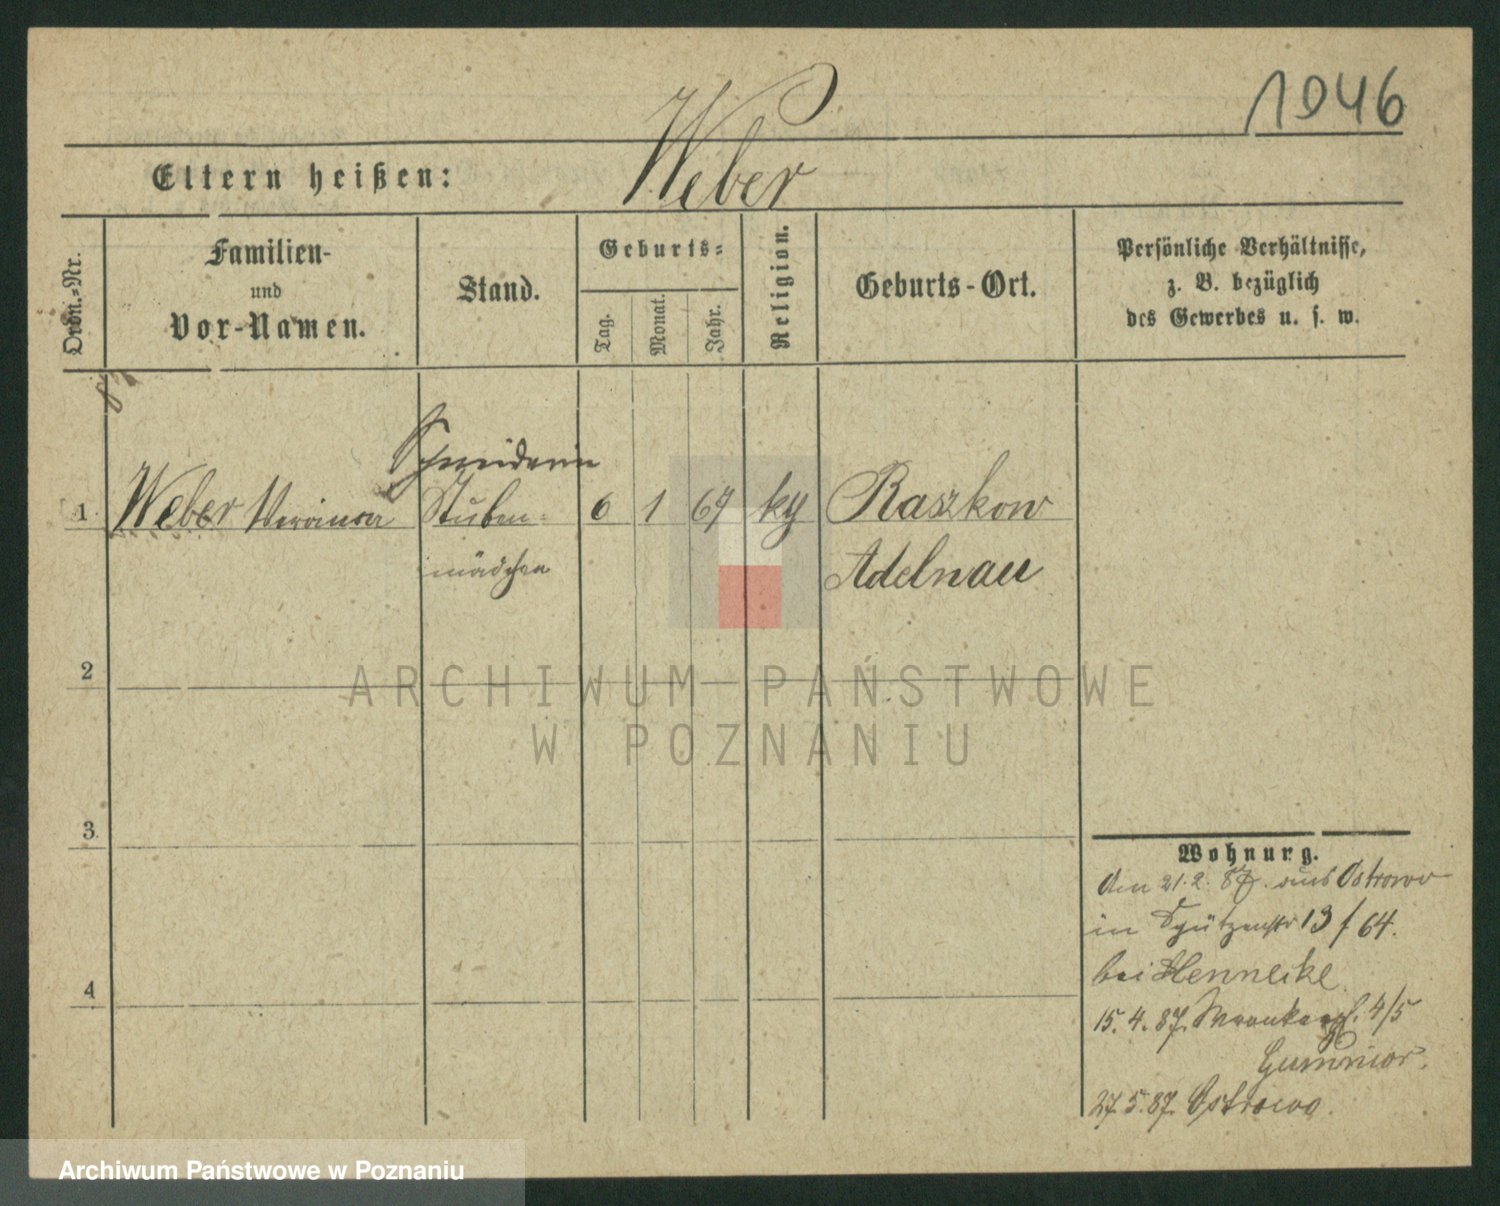 1946
Weber
Eltern heißen:
Ordn.-Nr.
Familien-
und
Vor-Namen.
Stand.
Geburts-
Tag.
Monat.
Jahr.
Religion.
Geburts-Ort.
Persönliche Verhältnisse,
z. B. bezüglich
des Gewerbes u. s. w.
87
Schneiderin
1 Weber Veronica Stuben- 6 1 67 kg Raszkow
mädchen Adelnau
2
3.
4
Wohnung.
den 21.2.87. aus Ostrowo
in Schützenstr 13 / 64.
bei Hennecke
15.4.87. 4/5
27.5.87. Ostrowo.
ARCHIWUM PAŃSTWOWE
W POZNANIU
Archiwum Państwowe w Poznaniu